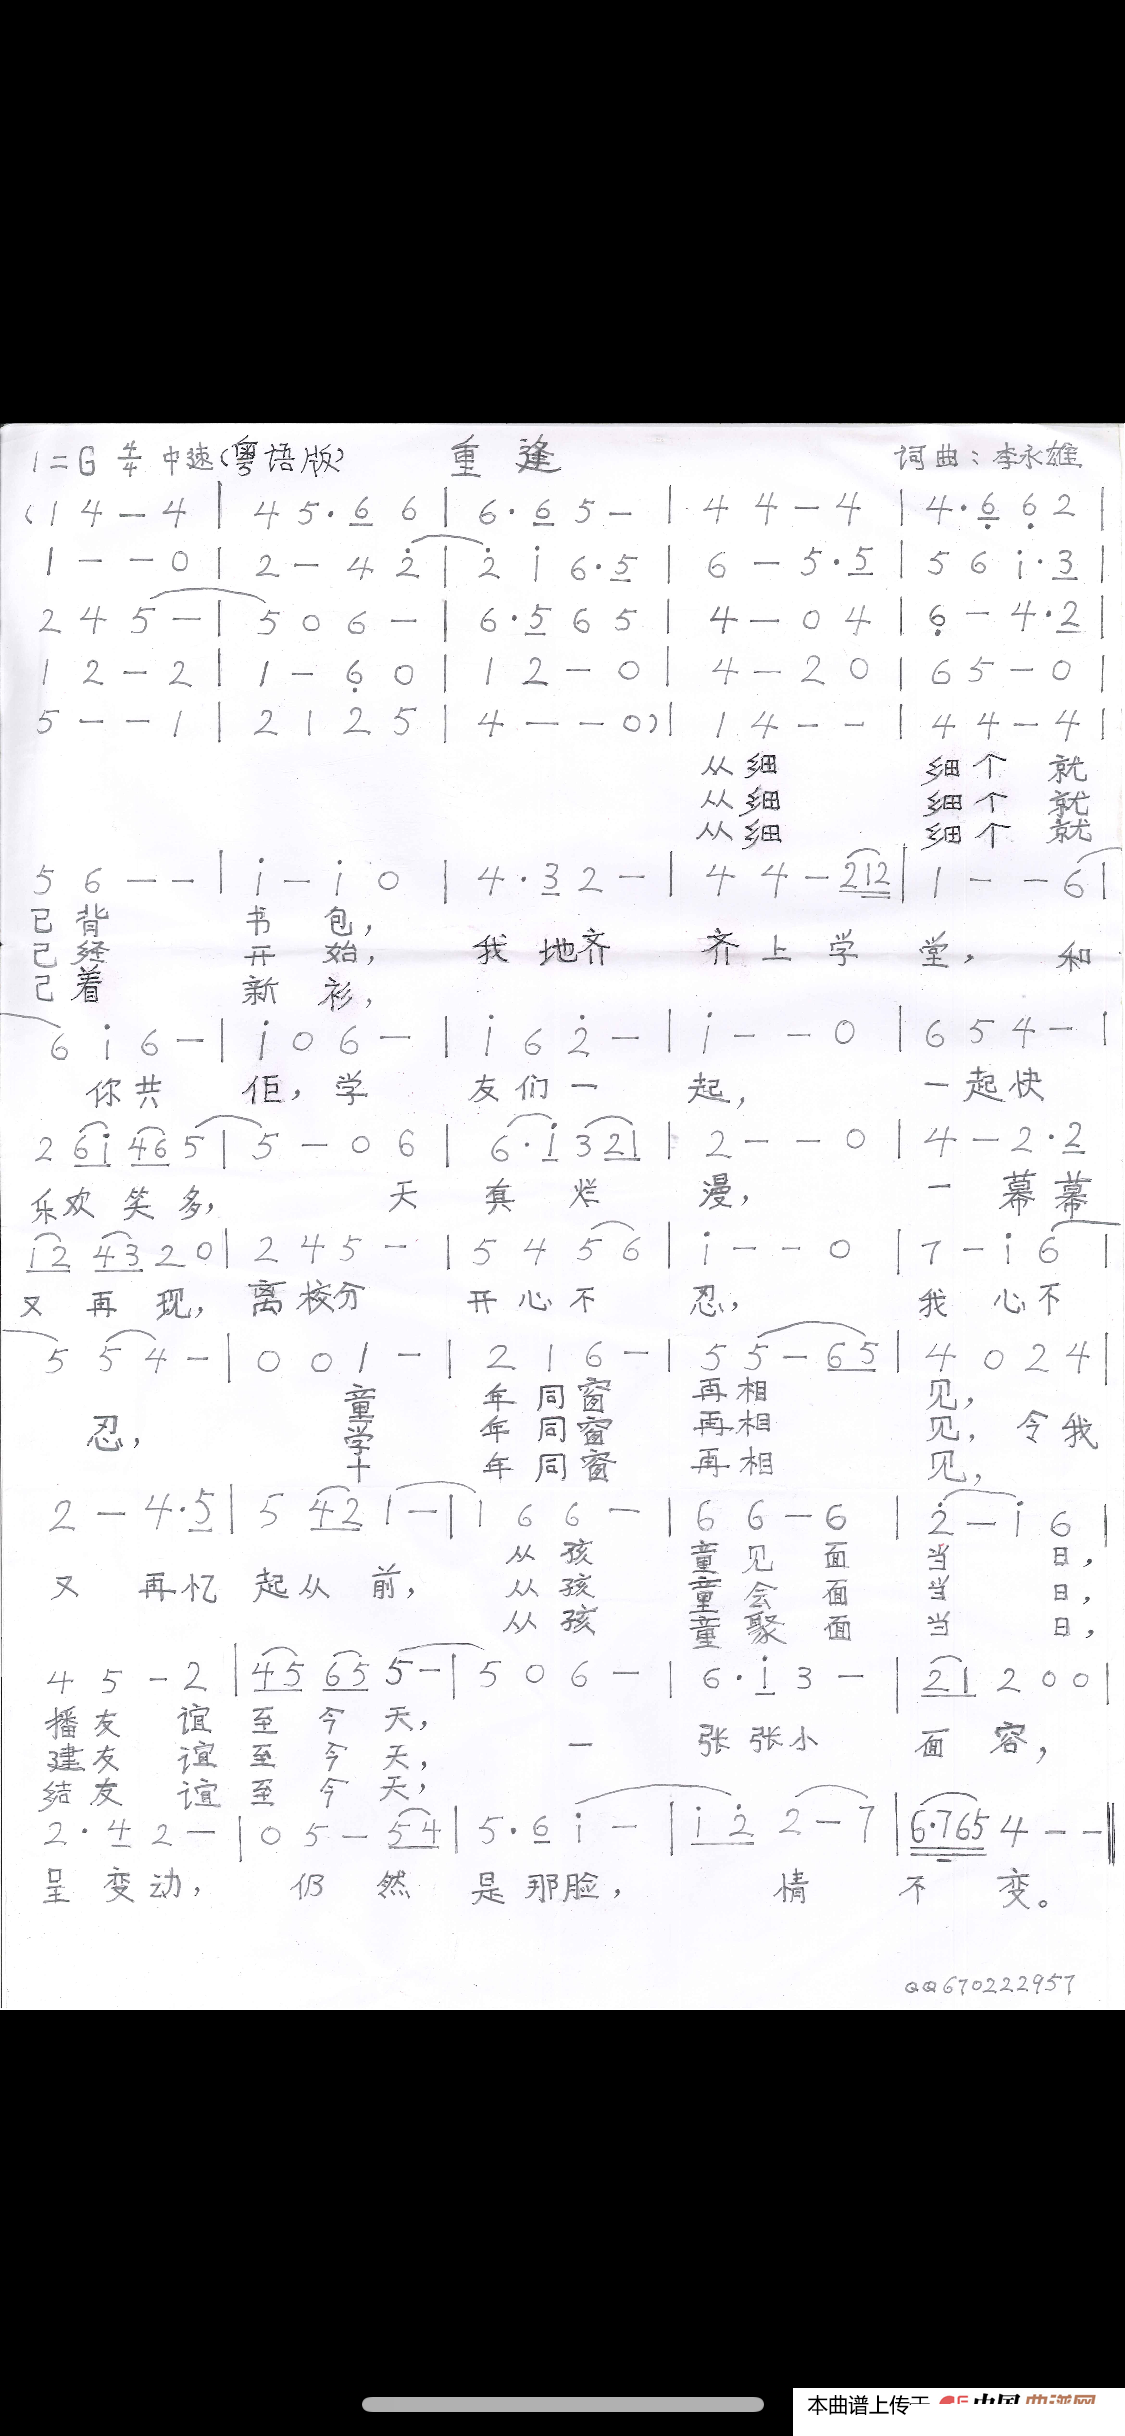 1=G 4/4 中速(粤语版) 重逢 词曲：李永雄
(1 4 — 4 | 4 5 · 6 6 | 6 · 6 5 — | 4 4 — 4 | 4 · 6̣ 6̣ 2 |
1 — — 0 | 2 — 4 2̇ | 2̇ i 6 · 5 | 6 — 5 · 5 | 5 6 i · 3 |
2 4 5 — | 5 0 6 — | 6 · 5 6 5 | 4 — 0 4 | 6̣ — 4 · 2 |
1 2 — 2 | 1 — 6̣ 0 | 1 2 — 0 | 4 — 2 0 | 6 5 — 0 |
5 — — 1 | 2 1 2 5 | 4 — — 0) | 1 4 — — | 4 4 — 4 |
从细 细个 就
从细 细个 就
从细 细个 就
5 6 — — | i — i 0 | 4 · 3 2 — | 4 4 — 212 | 1 — — 6 |
已背 书 包，
已经 开 始， 我地齐 齐上学 堂， 和
已着 新 衫，
6 i 6 — | i 0 6 — | i 6 2̇ — | i — — 0 | 6 5 4 — |
你共 佢，学 友们一 起， 一起快
2 6i 46 5 | 5 — 0 6 | 6 · i 3 21 | 2 — — 0 | 4 — 2 · 2
乐欢笑多， 天 真 烂 漫， 一 幕幕
i2 43 2 0 | 2 4 5 — | 5 4 5 6 | i — — 0 | 7 — i 6 |
又 再 现，离校分 开心不 忍， 我 心不
5 5 4 — | 0 0 1 — | 2 1 6 — | 5 5 — 65 | 4 0 2 4 |
童 年同窗 再相 见，
忍， 学 年同窗 再相 见，令我
十 年同窗 再相 见，
2 — 4 · 5 | 5 42 1 — | 1 6 6 — | 6 6 — 6 | 2̇ — i 6 |
从孩 童见 面 当 日，
又 再忆 起从 前， 从孩 童会 面 当 日，
从孩 童聚 面 当 日，
4 5 — 2 | 45 65 5 — | 5 0 6 — | 6 · i 3 — | 21 2 0 0 |
播友 谊 至 今 天，
建友 谊 至 今 天， 一 张张小 面容，
结友 谊 至 今 天，
2 · 4 2 — | 0 5 — 54 | 5 · 6 i — | i 2̇ 2 — 7 | 6·765 4 — — ‖
呈变动， 仍 然 是那脸， 情 不 变。
QQ670222957
本曲谱上传于